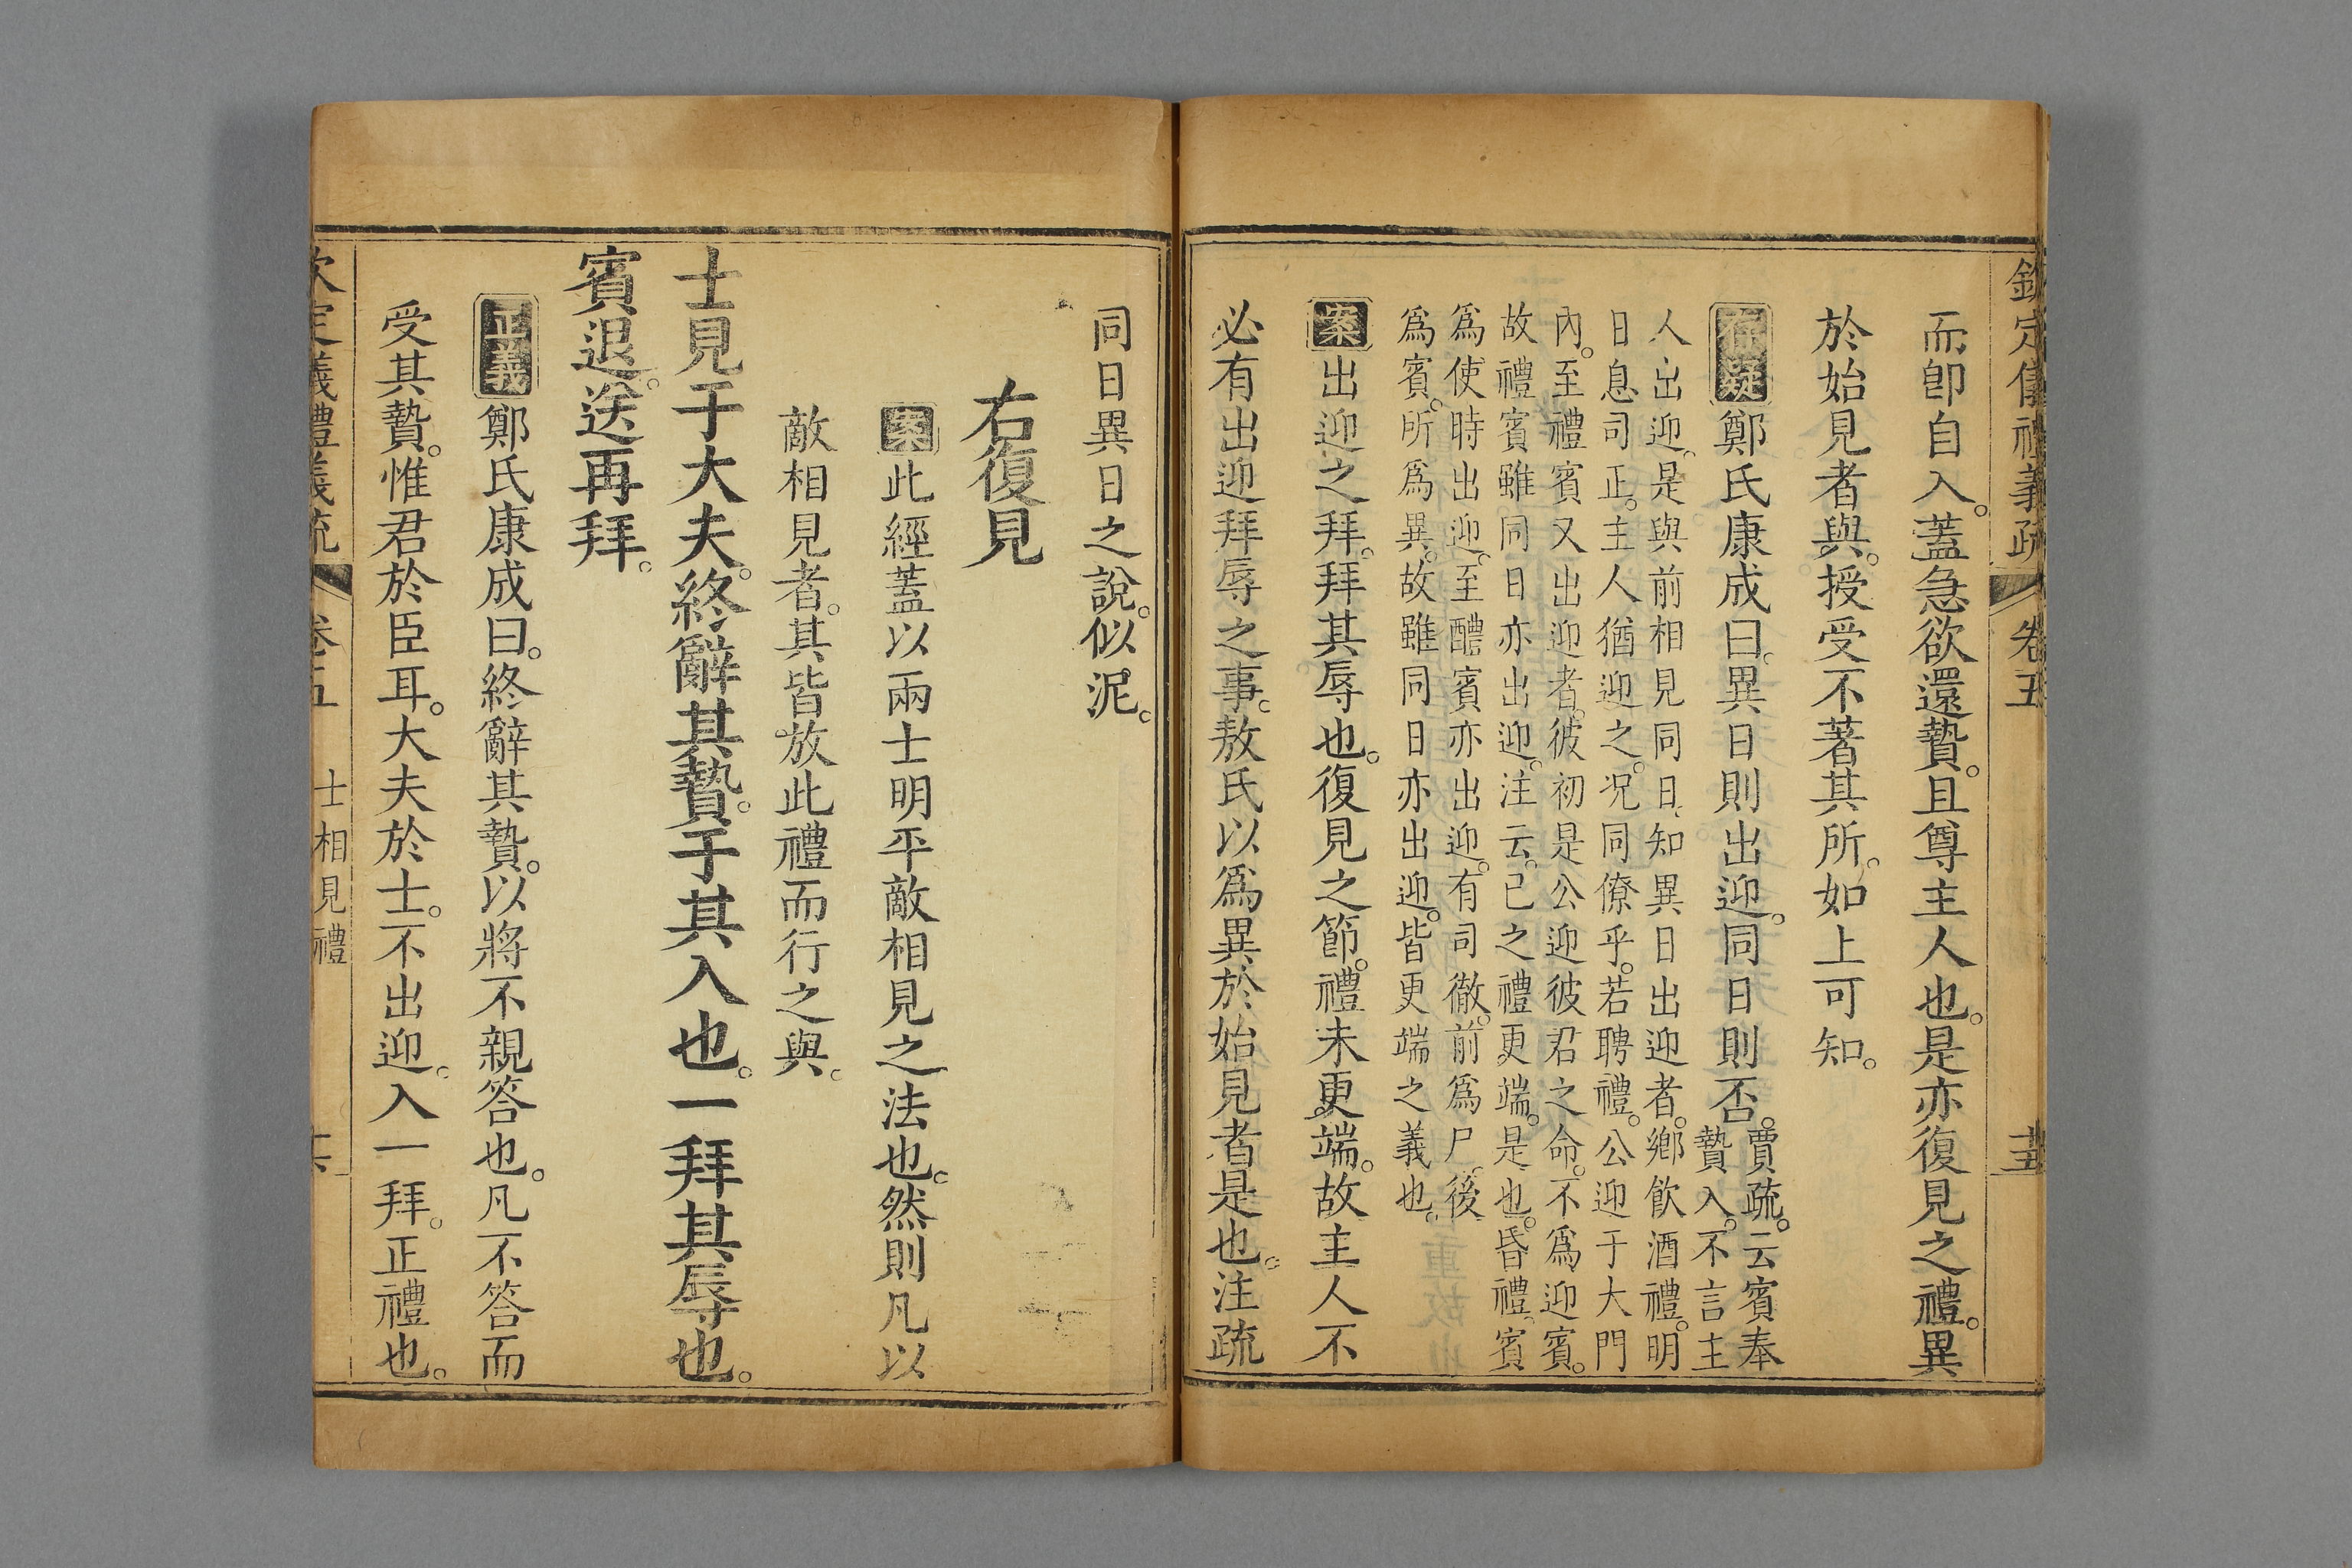 欽定儀禮義疏 卷五
而卽自入。蓋急欲還贄。且尊主人也。是亦復見之禮。異
於始見者與。授受不著其所。如上可知。
存疑 鄭氏康成曰。異日則出迎。同日則否。賈疏。云賓奉
贄入。不言主
人出迎。是與前相見同日、知異日出迎者。鄉飮酒禮。明
日息司正。主人猶迎之。况同僚乎。若聘禮。公迎于大門
內。至禮賓又出迎者。彼初是公迎彼君之命。不爲迎賓。
故禮賓雖同日亦出迎。注云。己之禮更端。是也。昏禮。賓
爲使時出迎。至醴賓亦出迎。有司徹。前爲尸。後
爲賓。所爲異。故雖同日亦出迎。皆更端之義也。
案 出迎之拜。拜其辱也。復見之節。禮未更端。故主人不
必有出迎拜辱之事。敖氏以爲異於始見者是也。注疏
同日異日之說。似泥。
右復見
案 此經蓋以兩士明平敵相見之法也。然則凡以
敵相見者。其皆放此禮而行之與。
士見于大夫。終辭其贄。于其入也。一拜其辱也。
賓退。送再拜。
正義 鄭氏康成曰。終辭其贄。以將不親答也。凡不答而
受其贄。惟君於臣耳。大夫於士。不出迎。入一拜。正禮也。
欽定儀禮義疏 卷五 士相見禮